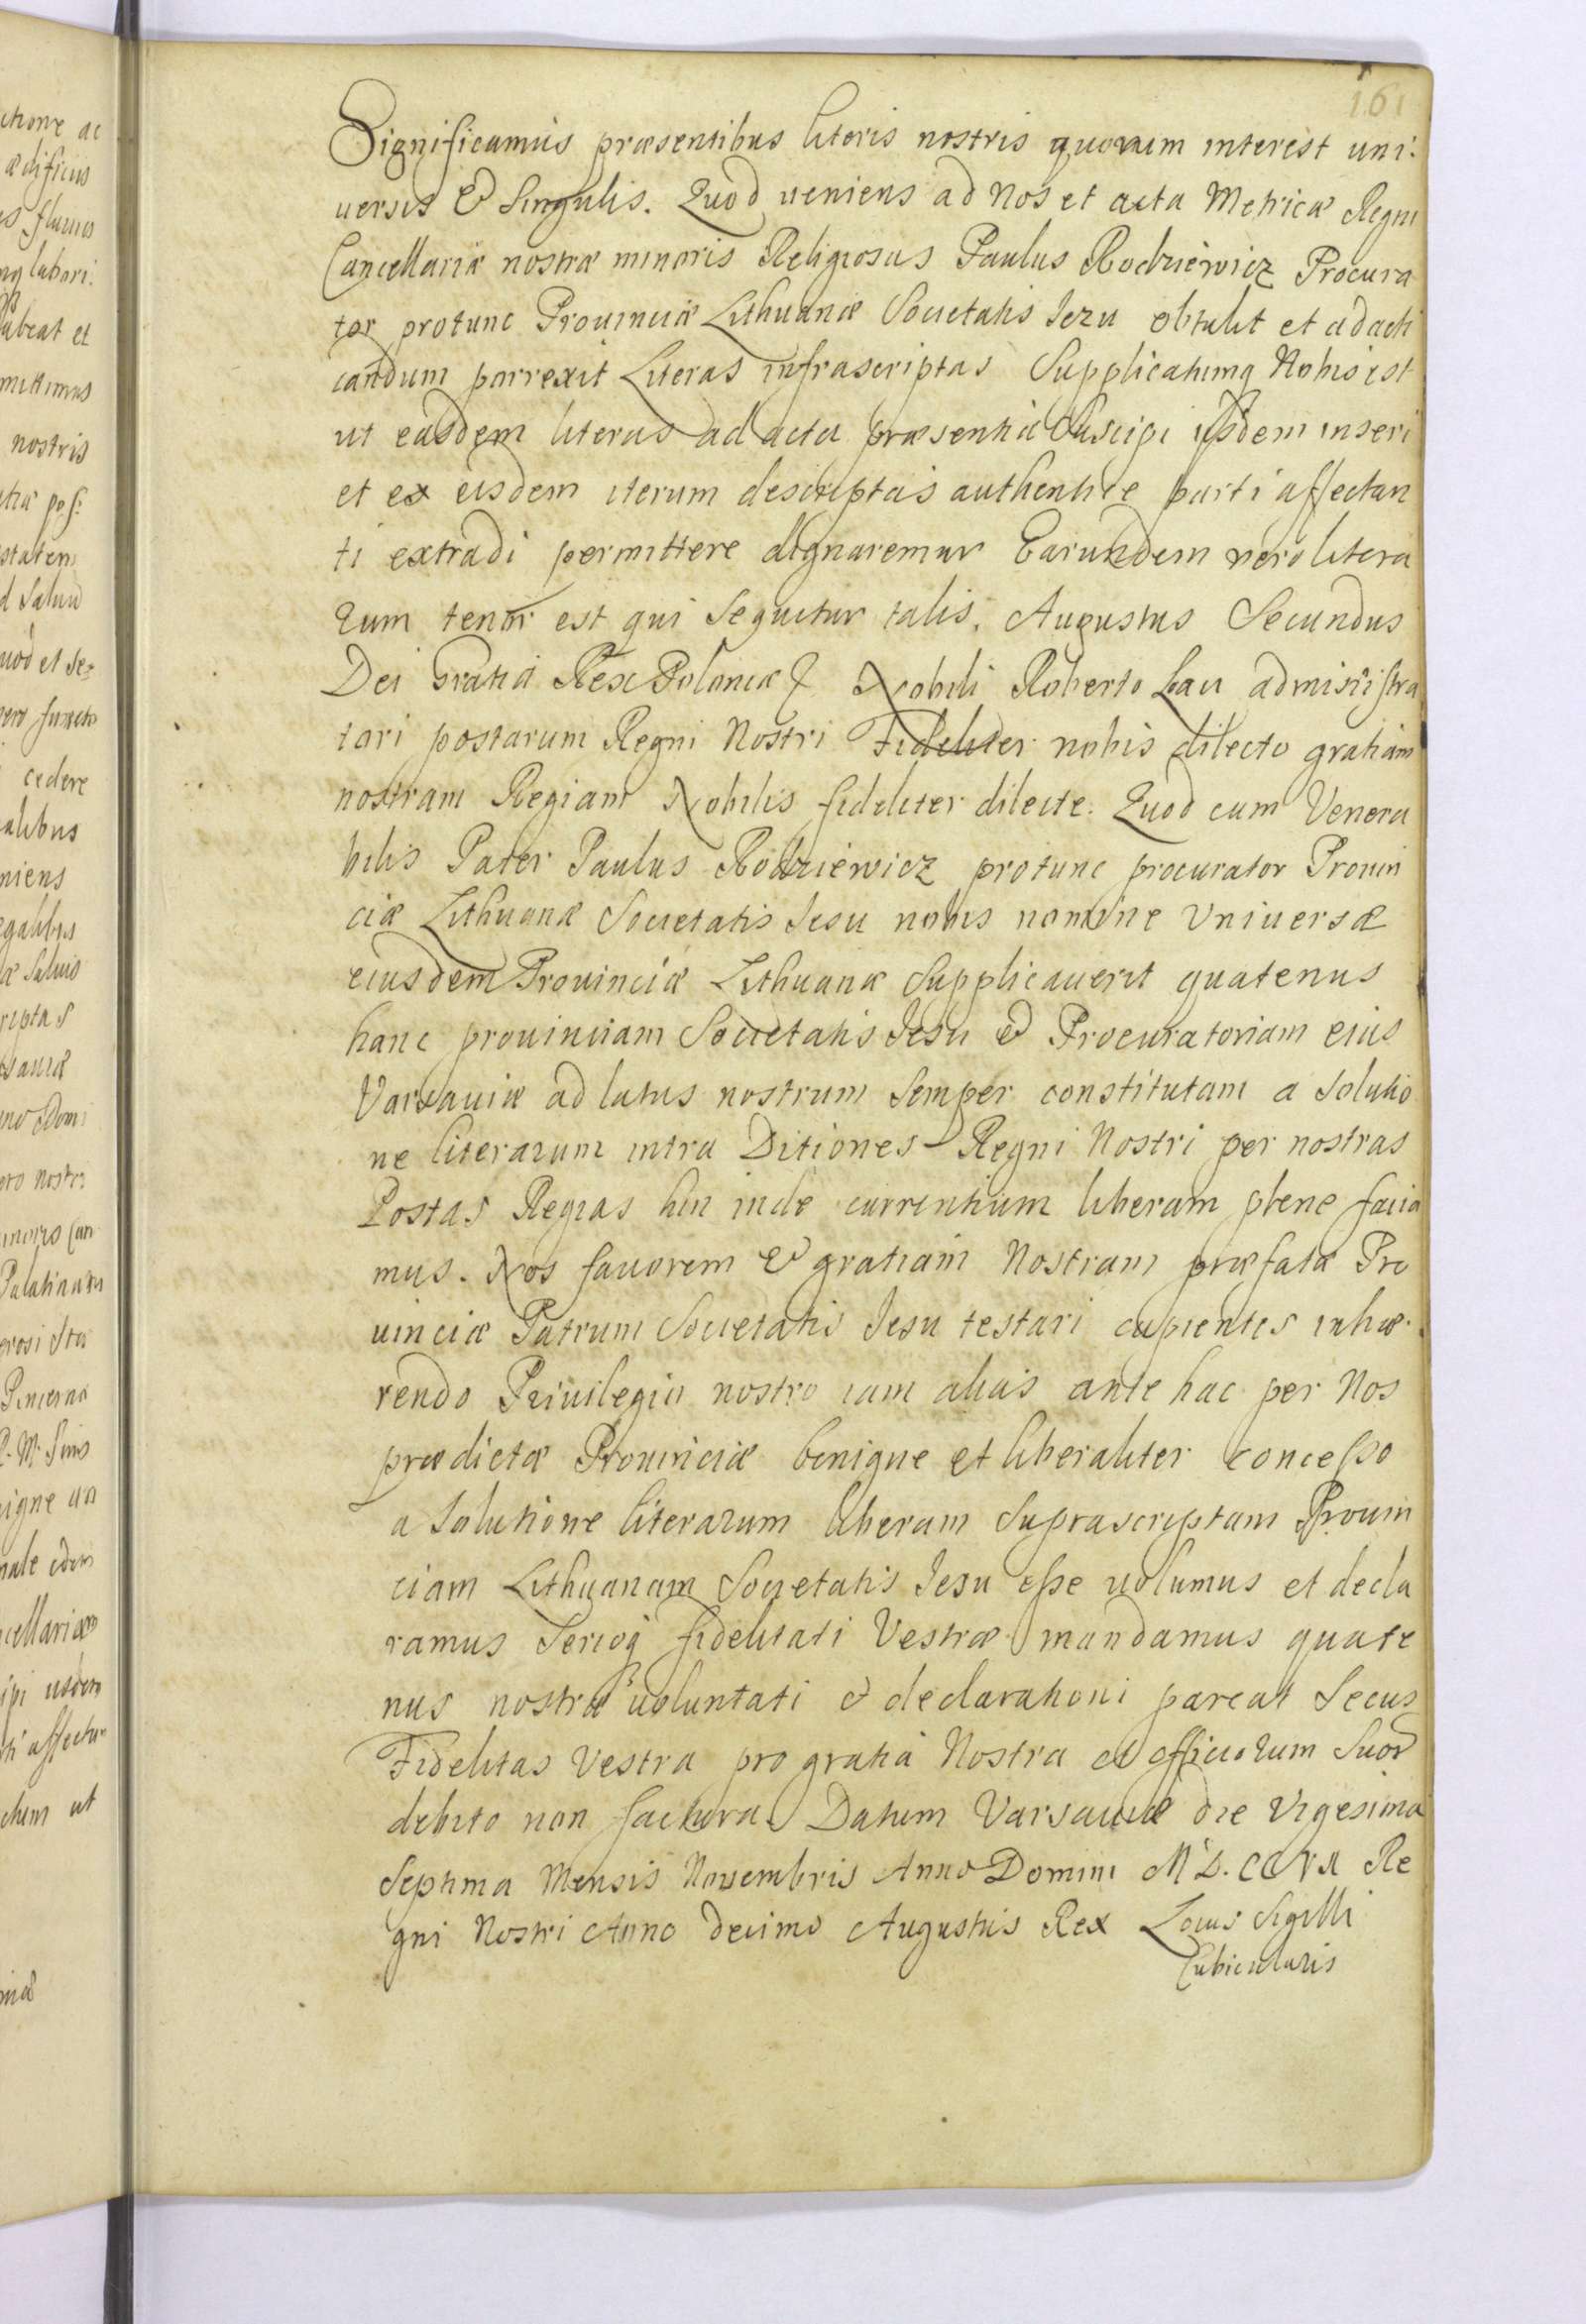 161
Significamus præsentibus literis nostris quorum interest uni:
uersis & Singulis. Quod ueniens ad Nos et acta Metricæ Regni
Cancellariæ nostræ minoris Religiosus Paulus Rodziewicz Procura
tor protunc Prouinciæ Lithuanæ Societatis Iezu obtulit et ad acti
candum porrexit Literas infrascriptas Supplicatumq Nobis est
ut easdem literas ad acta præsentia Suscipi ijsdem inseri
et ex eisdem iterum descriptas authentice parti affectan
ti extradi permittere dignaremur Earundem vero litera
rum tenor est qui Sequitur talis. Augustus Secundus
Dei Gratia Rex Poloniæ & Nobili Roberto Lau administra
tori postarum Regni Nostri Fideliter nobis dilecto gratiam
nostram Regiam Nobilis fideliter dilecte. Quod cum Venera
bilis Pater Paulus Rodziewicz protunc procurator Prouin
ciæ Lithuanæ Societatis Iesu nobis nomine Vniuersæ
eiusdem Prouinciæ Lithuanæ Supplicauerit quatenus
hanc prouinciam Societatis Iesu & Procuratoriam eius
Varsauiæ ad latus nostrum Semper constitutam a Solutio
ne literarum intra Ditiones Regni Nostri per nostras
Postas Regias hin inde currentium liberam plene facia
mus. Nos fauorem & gratiam Nostram præfatæ Pro
uinciæ Patrum Societatis Iesu testari cupientes inhæ
rendo Priuilegio nostro iam alias ante hac per Nos
prædictæ Prouinciæ benigne et liberaliter concesso
a Solutione literarum liberam Suprascriptam Prouin
ciam Lithuanam Societatis Iesu esse uolumus et decla
ramus Serioq fidelitati Vestræ mandamus quate
nus nostræ uoluntati & declarationi pareat Secus
Fidelitas Vestra pro gratia Nostra et officiorum Suor
debito non factura. Datum Varsauiæ die Vigesima
Septima Mensis Nouembris Anno Domini M D. CCVII Re
gni Nostri Anno decimo Augustus Rex Locus Sigilli
Cubicularis